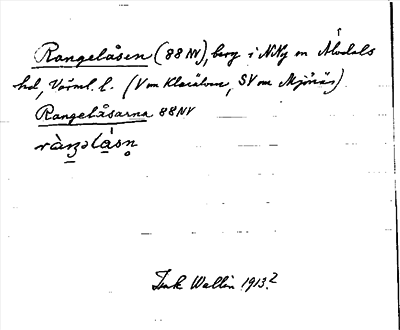 Rangelåsen (88 NV), berg i N. Ny sn Älvdals
hd, Värml. l. (V om Klarälven, SV om Mjönäs)
Rangelåsarna 88 NV

Wallin 1913?